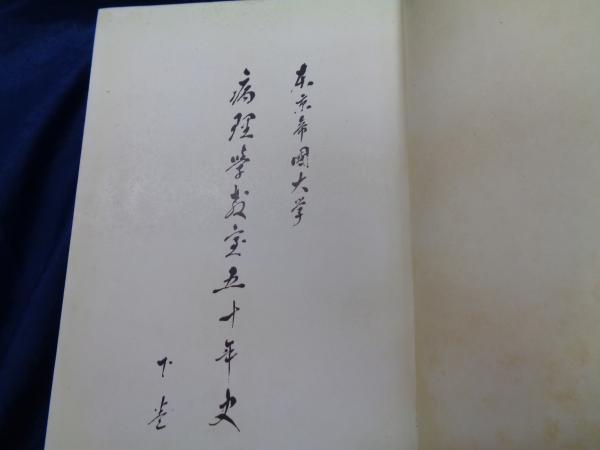 东京帝國大学
病理學教室五十年史
下巻